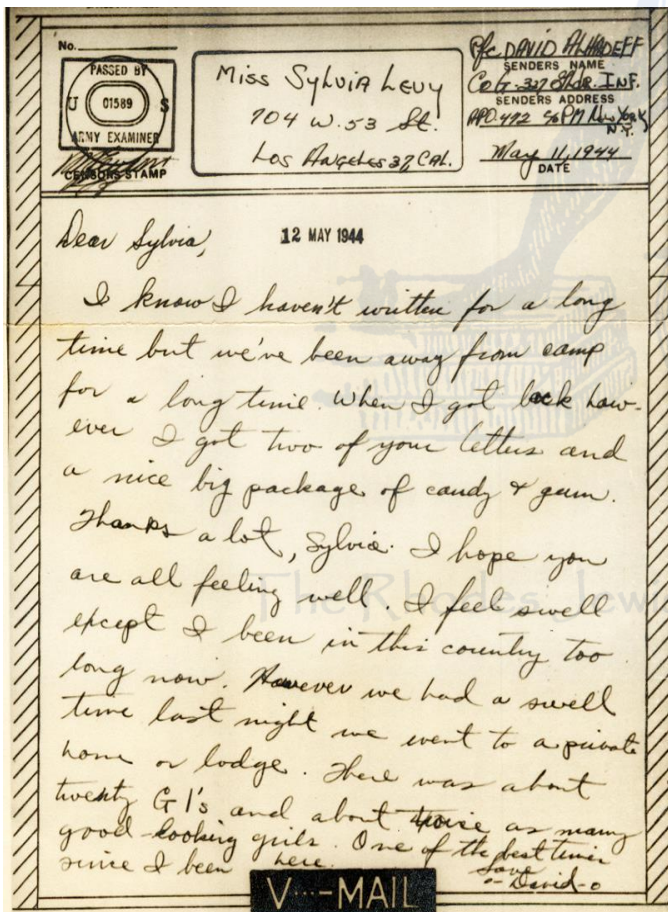 No.
PASSED BY
U S
01589
ARMY EXAMINER
CENSORS STAMP
Miss Sylvia Levy
704 W. 53 St.
Los Angeles 37, CAL.
Pfc. DAVID ALHADEFF
SENDERS NAME
Co G- 327 Gldr. INF.
SENDERS ADDRESS
APO 472 % PM New York
N.Y.
May 11, 1944
DATE
Dear Sylvia,
12 MAY 1944
I know I haven't written for a long
time but we've been away from camp
for a long time. When I got back how-
ever I got two of your letters and
a nice big package of candy & gum.
Thanks a lot, Sylvia. I hope you
are all feeling well. I feel swell
except I been in this country too
long now. However we had a swell
time last night we went to a private
home or lodge. There was about
twenty GI's and about twice as many
good-looking girls. One of the best times
since I been here.
Love
- David -o
The Rhodes Jew
V···-MAIL